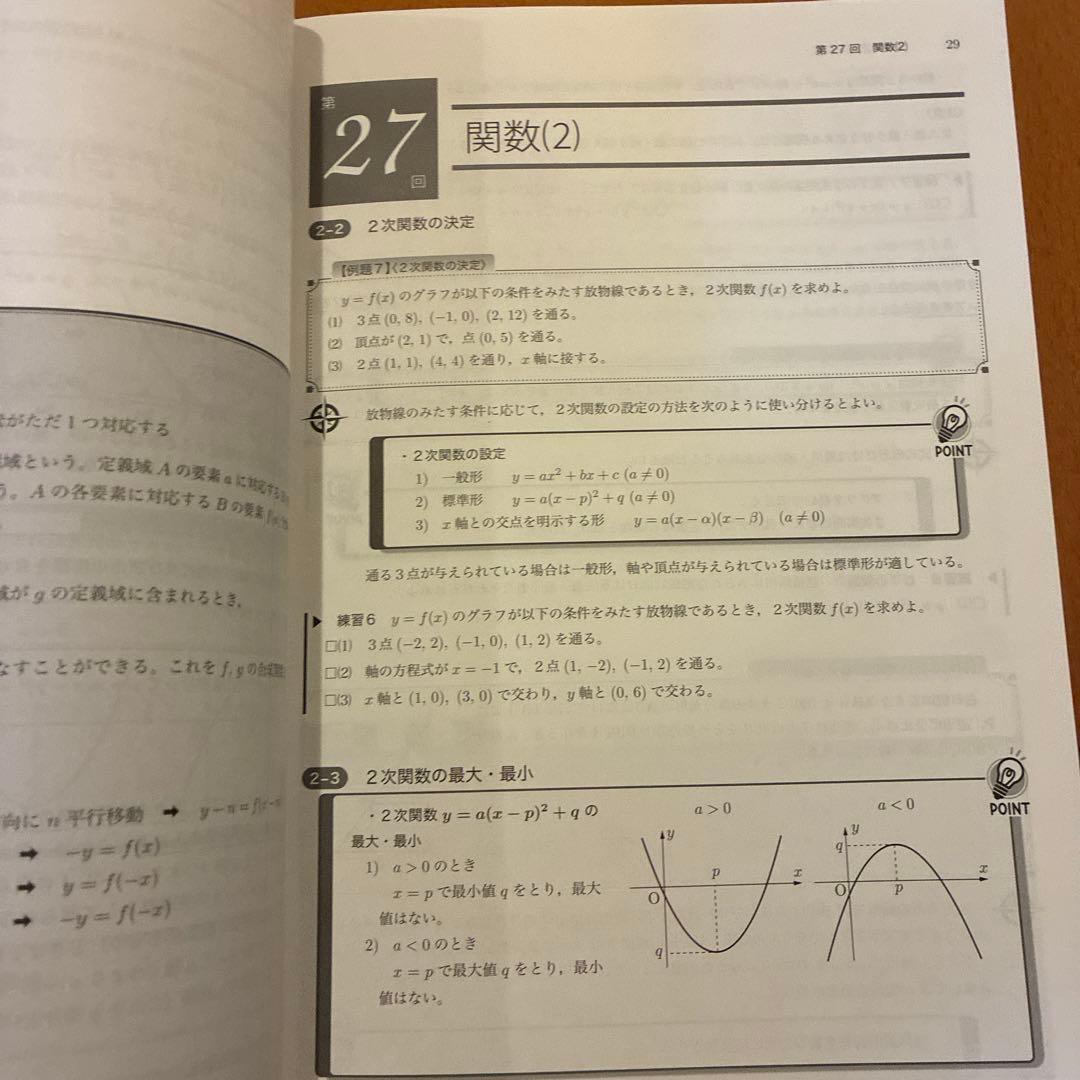 第27回 関数(2) 29
第
27
回
関数(2)
2-2 2次関数の決定
【例題7】〈2次関数の決定〉
y=f(x) のグラフが以下の条件をみたす放物線であるとき，2次関数 f(x) を求めよ。
(1) 3点 (0, 8), (−1, 0), (2, 12) を通る。
(2) 頂点が (2, 1) で，点 (0, 5) を通る。
(3) 2点 (1, 1), (4, 4) を通り，x 軸に接する。
放物線のみたす条件に応じて，2次関数の設定の方法を次のように使い分けるとよい。
POINT
・2次関数の設定
1) 一般形 y=ax²+bx+c (a≠0)
2) 標準形 y=a(x−p)²+q (a≠0)
3) x 軸との交点を明示する形 y=a(x−α)(x−β) (a≠0)
通る3点が与えられている場合は一般形，軸や頂点が与えられている場合は標準形が適している。
練習6 y=f(x) のグラフが以下の条件をみたす放物線であるとき，2次関数 f(x) を求めよ。
□(1) 3点 (−2, 2), (−1, 0), (1, 2) を通る。
□(2) 軸の方程式が x=−1 で，2点 (1, −2), (−1, 2) を通る。
□(3) x 軸と (1, 0), (3, 0) で交わり，y 軸と (0, 6) で交わる。
2-3 2次関数の最大・最小
POINT
・2次関数 y=a(x−p)²+q の
最大・最小
1) a>0 のとき
x=p で最小値 q をとり，最大
値はない。
2) a<0 のとき
x=p で最大値 q をとり，最小
値はない。
a>0
y
p
x
O
q
a<0
y
q
x
O
p
がただ1つ対応する
域という。定義域 A の要素 a に対応する
う。A の各要素に対応する B の要素
域が g の定義域に含まれるとき，
なすことができる。これを f, g の
向に n 平行移動 ➡ y−n=f(x−
➡ −y=f(x)
➡ y=f(−x)
➡ −y=f(−x)